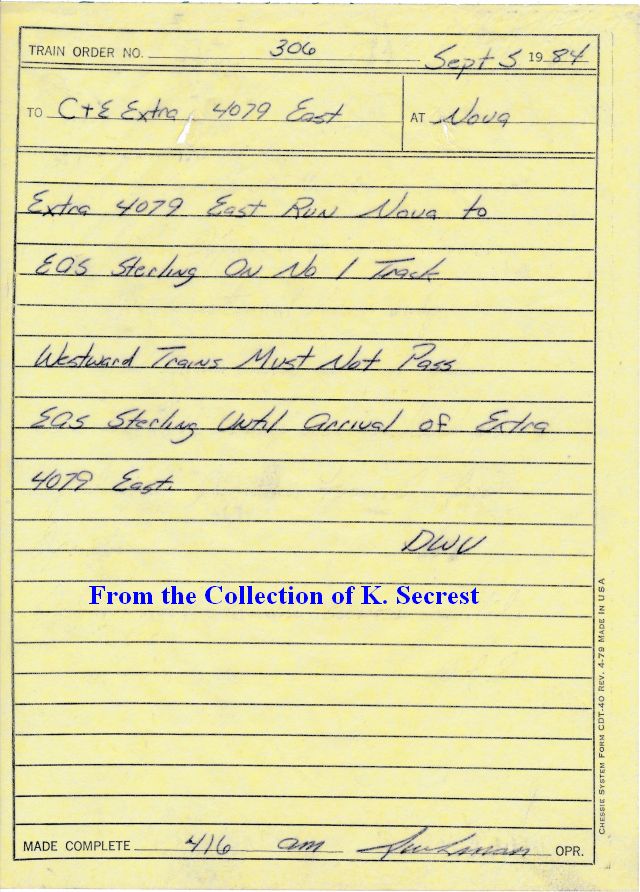 TRAIN ORDER NO. 306 Sept 5 1984
TO C+E Extra 4079 East AT Nova
Extra 4079 East Run Nova to
EAS Sterling On No 1 Track
Westward Trains Must Not Pass
EAS Sterling Until Arrival of Extra
4079 East.
DWV
From the Collection of K. Secrest
CHESSIE SYSTEM FORM CDT-40 REV. 4-79 MADE IN USA
MADE COMPLETE 416 am OPR.